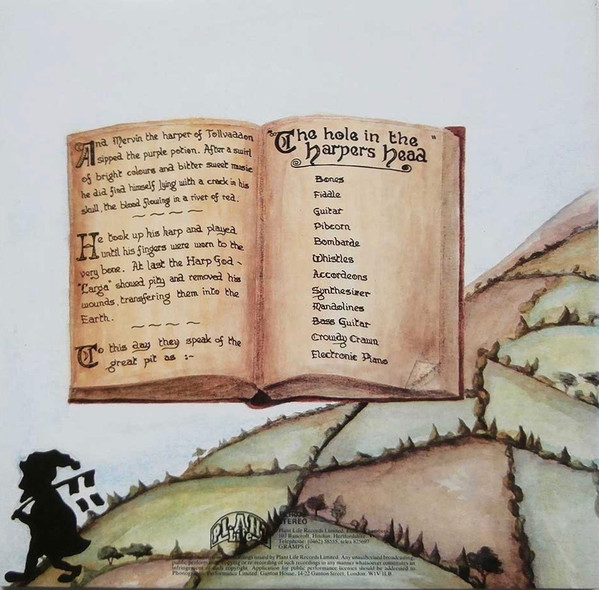 And Mervin the harper of Tollvaddon
sipped the purple potion. After a swirl
of bright colours and bitter sweet music
he did find himself lying with a crack in his
skull, the blood flowing in a river of red.
He took up his harp and played
until his fingers were worn to the
very bone. At last the Harp God ~
"Larga" showed pity and removed his
wounds, transfering them into the
Earth.
To this day they speak of the
great pit as :-
"The hole in the
harpers head"
Bones
Fiddle
Guitar
Pibcorn
Bombarde
Whistles
Accordeons
Synthesizer
Mandolines
Bass Guitar
Crowdy Crawn
Electronic Piano
PLANT
Life
STEREO
Plant Life Records Limited,
Telephone: (0462)
GRAMPS
issued by Plant Life Records Limited. Any unauthorised broadcasting,
public performance, copying or re-recording of such recordings in any manner whatsoever constitutes an
infringement of such copyright. Application for public performance licences should be addressed to
Phonographic Performance Limited, Ganton House, 14-22 Ganton Street, London, W1V 1LB.